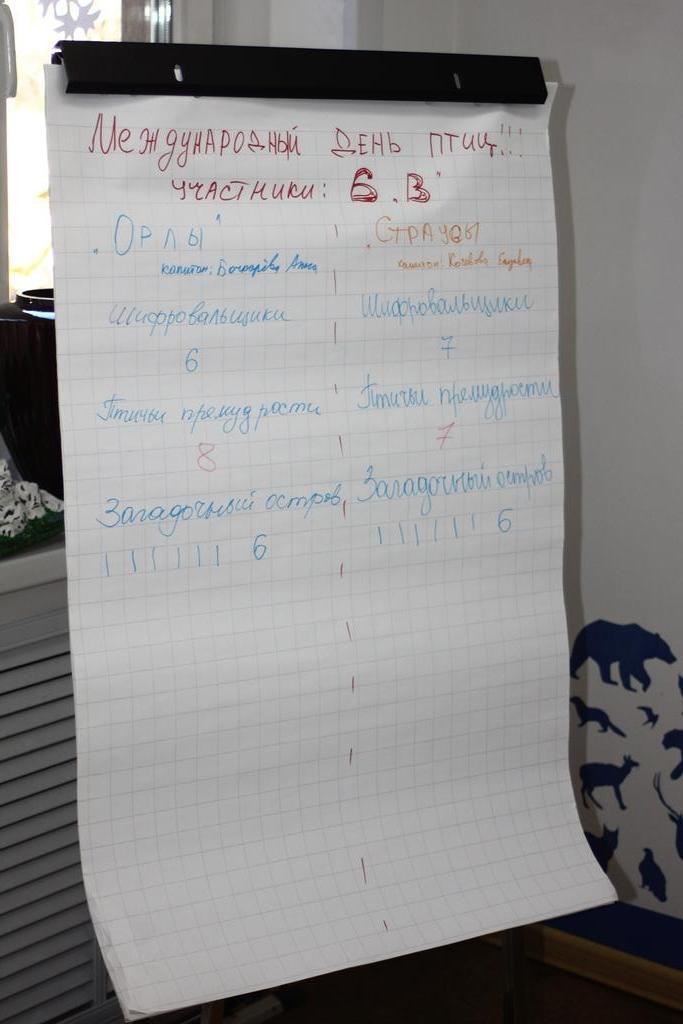 Международный день птиц!!!
участники: 6 „В"
„Орлы"
капитан: Бочкарёва Анна
Шифровальщики
6
Птичьи премудрости
8
Загадочный остров
| | | | | | 6
„Страусы
капитан:
Шифровальщики
7
Птичьи премудрости
7
Загадочный остров
| | | | | | 6